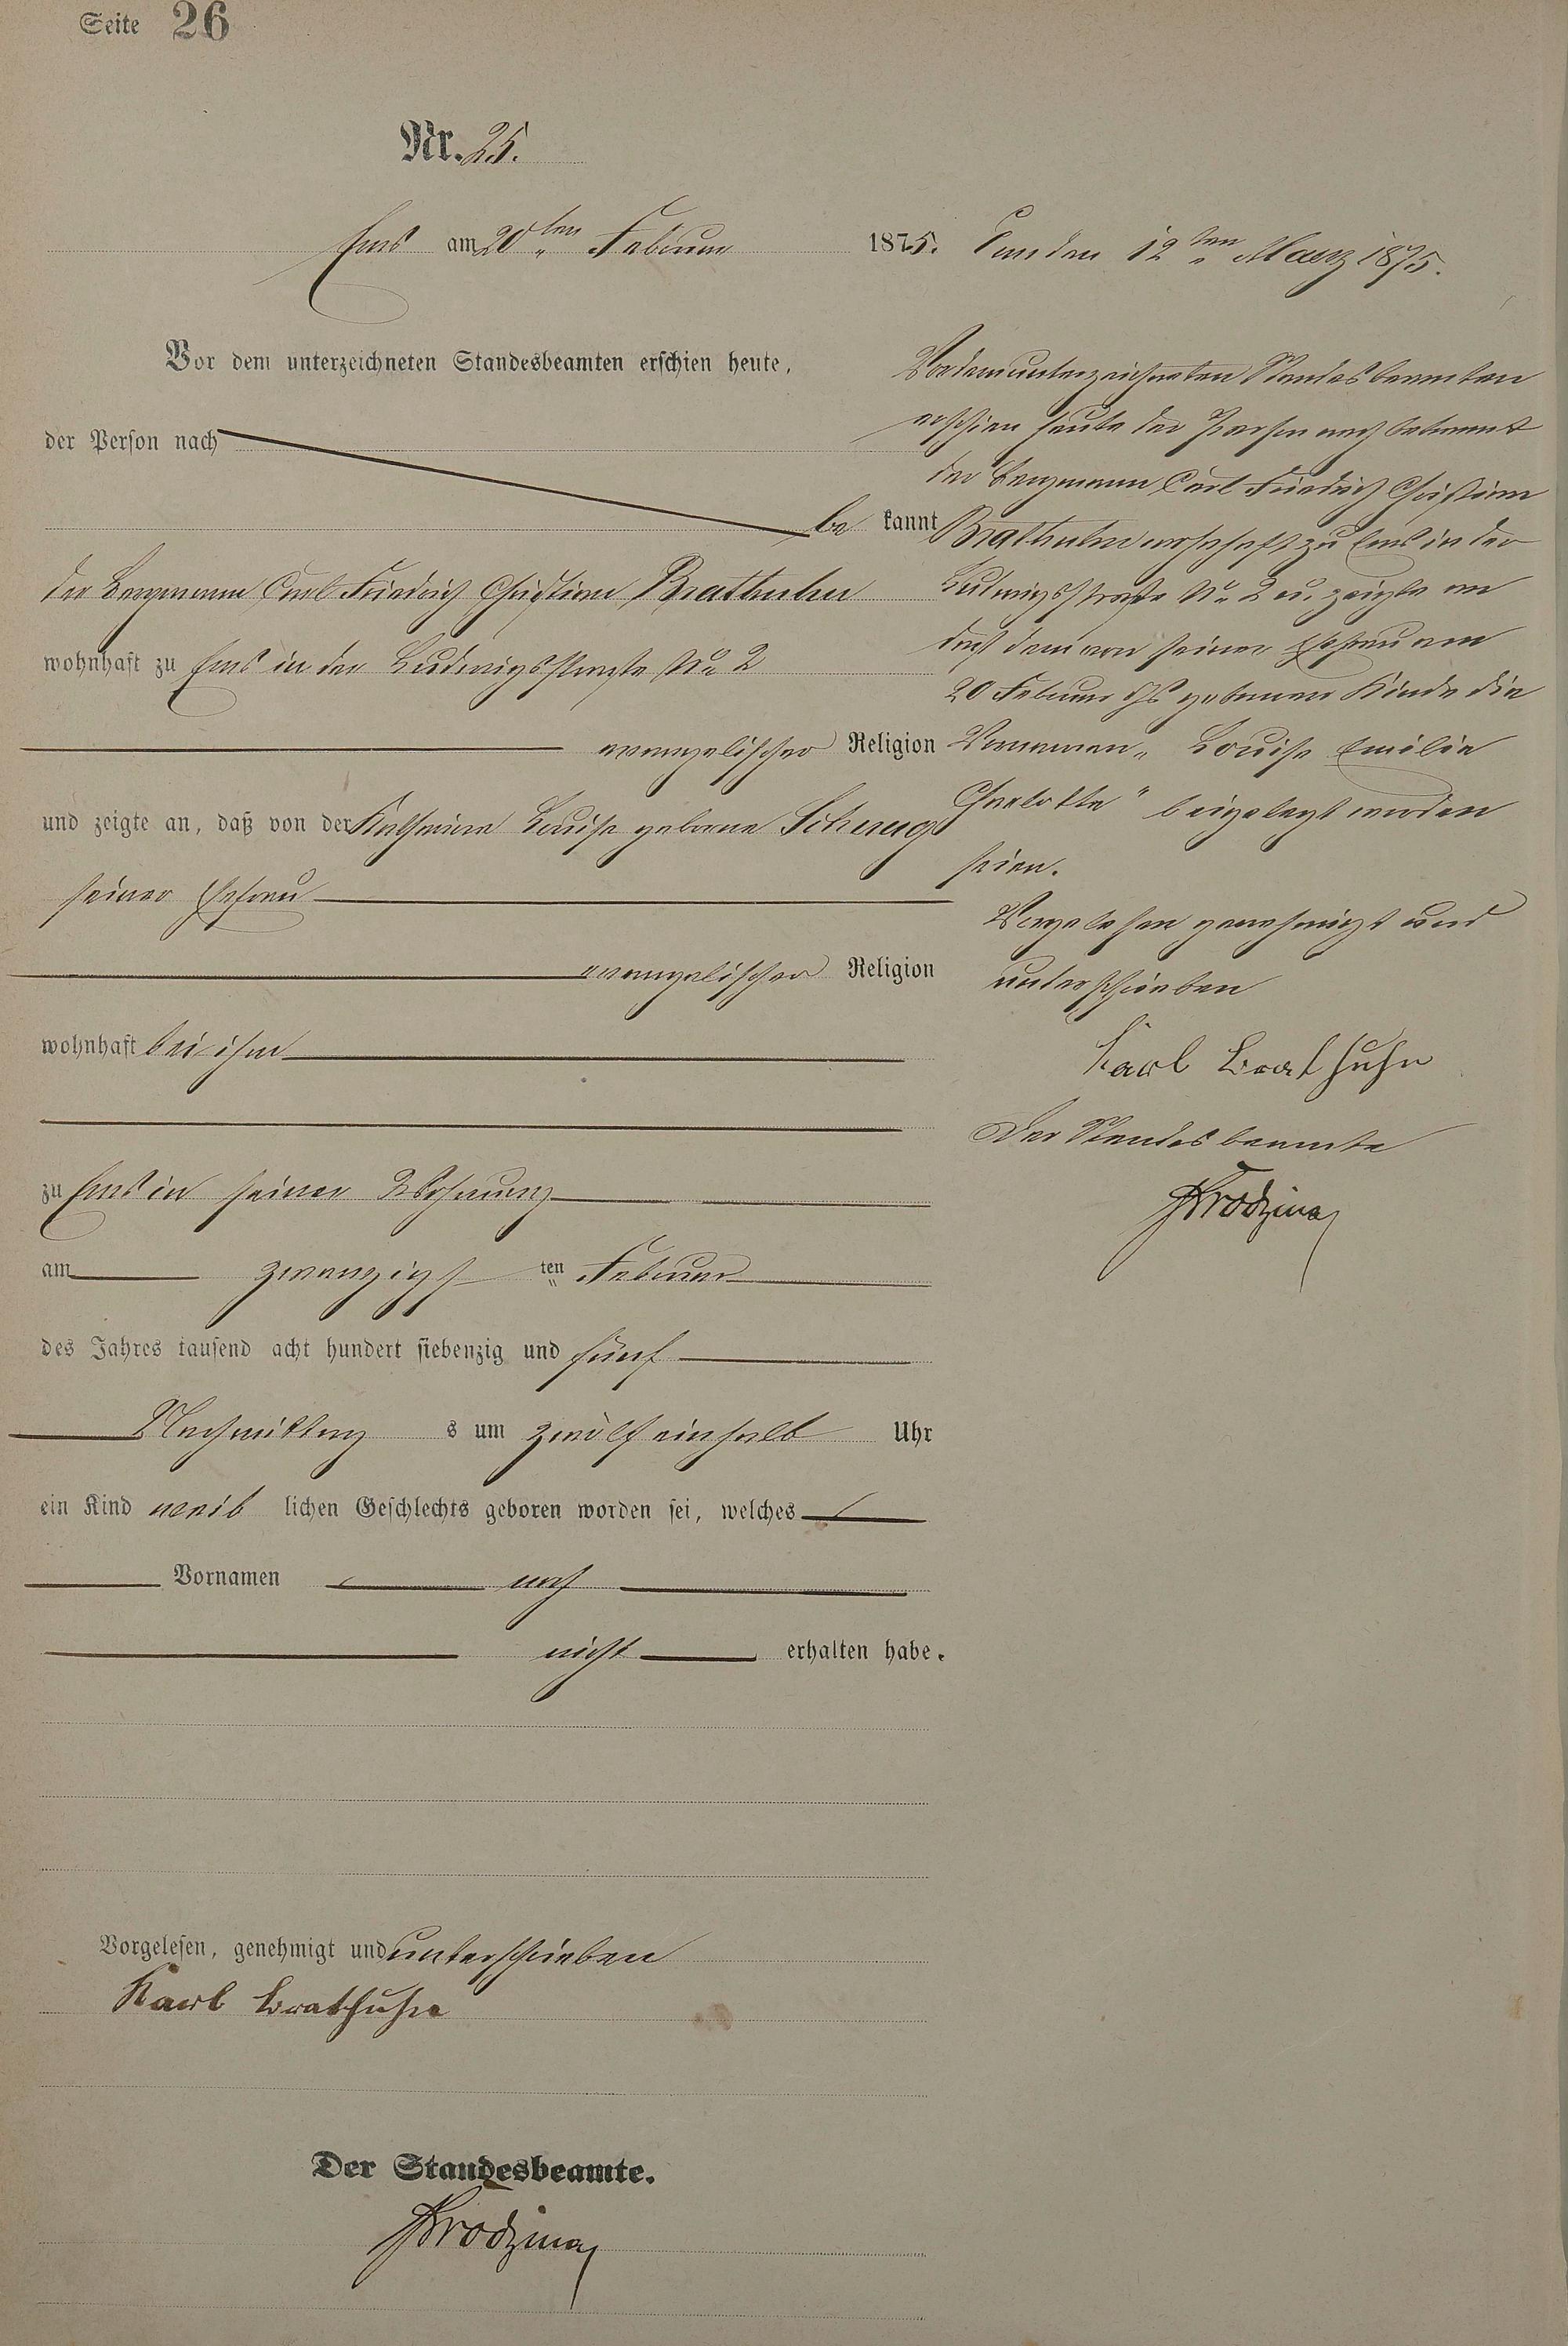 Seite 26
Nr. 25.
Ems am 20ten Februar 1875.
Vor dem unterzeichneten Standesbeamten erschien heute,
der Person nach
be kannt
der Bergmann Carl Friedrich Christian Brathuhn
wohnhaft zu Ems in der Ludwigsstraße No 2
evangelischer Religion
und zeigte an, daß von der Katharine Louise geborne
seiner Ehefrau
evangelischer Religion
wohnhaft bei ihm
zu Ems in seiner Wohnung
am zwanzigsten Februar
des Jahres tausend acht hundert siebenzig und fünf
Nachmittags um zwölf einhalb Uhr
ein Kind weiblichen Geschlechts geboren worden sei, welches
Vornamen noch
nicht erhalten habe.
Vorgelesen, genehmigt und unterschrieben
Karl Brathuhn
Der Standesbeamte.
den 12ten Maerz 1875.
Vor dem unterzeichneten Standesbeamten
erschien heute der Person nach bekannt
der Bergmann Carl Friedrich Christian
Brathuhn wohnhaft zu Ems in der
Ludwigsstraße No 2 u. zeigte an
daß dem von seiner Ehefrau am
20 Februar geborenen Kinde die
Vornamen „Louise Emilie
Charlotte" beigelegt worden
seien.
Vorgelesen genehmigt und
unterschrieben
Karl Brathuhn
Der Standesbeamte